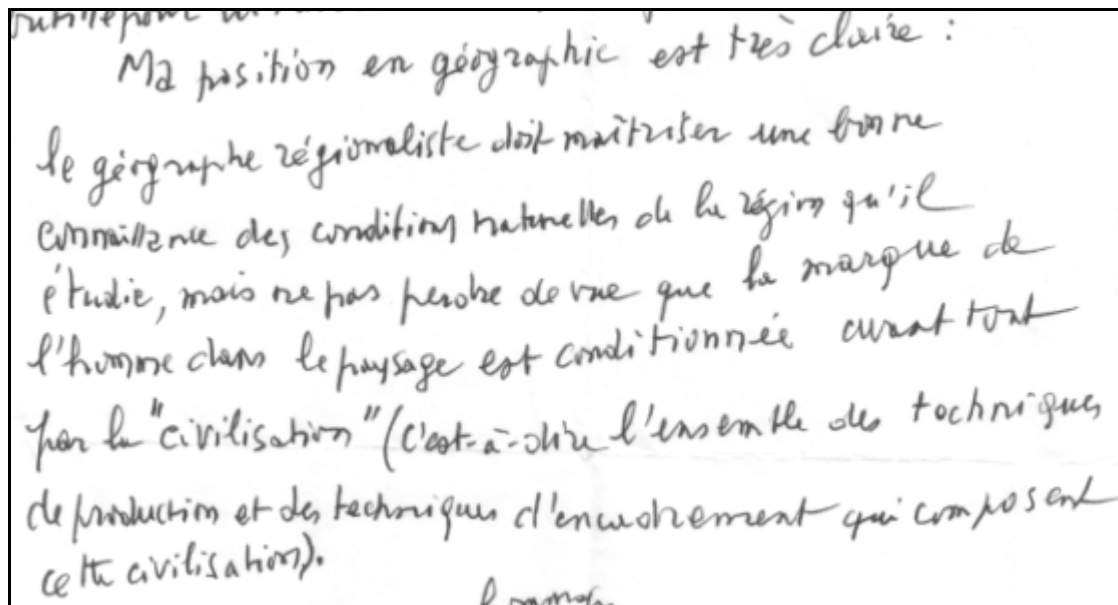 Ma position en géographie est très claire :
le géographe régionaliste doit maîtriser une bonne
connaissance des conditions naturelles de la région qu'il
étudie, mais ne pas perdre de vue que la marque de
l'homme dans le paysage est conditionnée avant tout
par la "civilisation" (c'est-à-dire l'ensemble des techniques
de production et des techniques d'encadrement qui composent
cette civilisation).